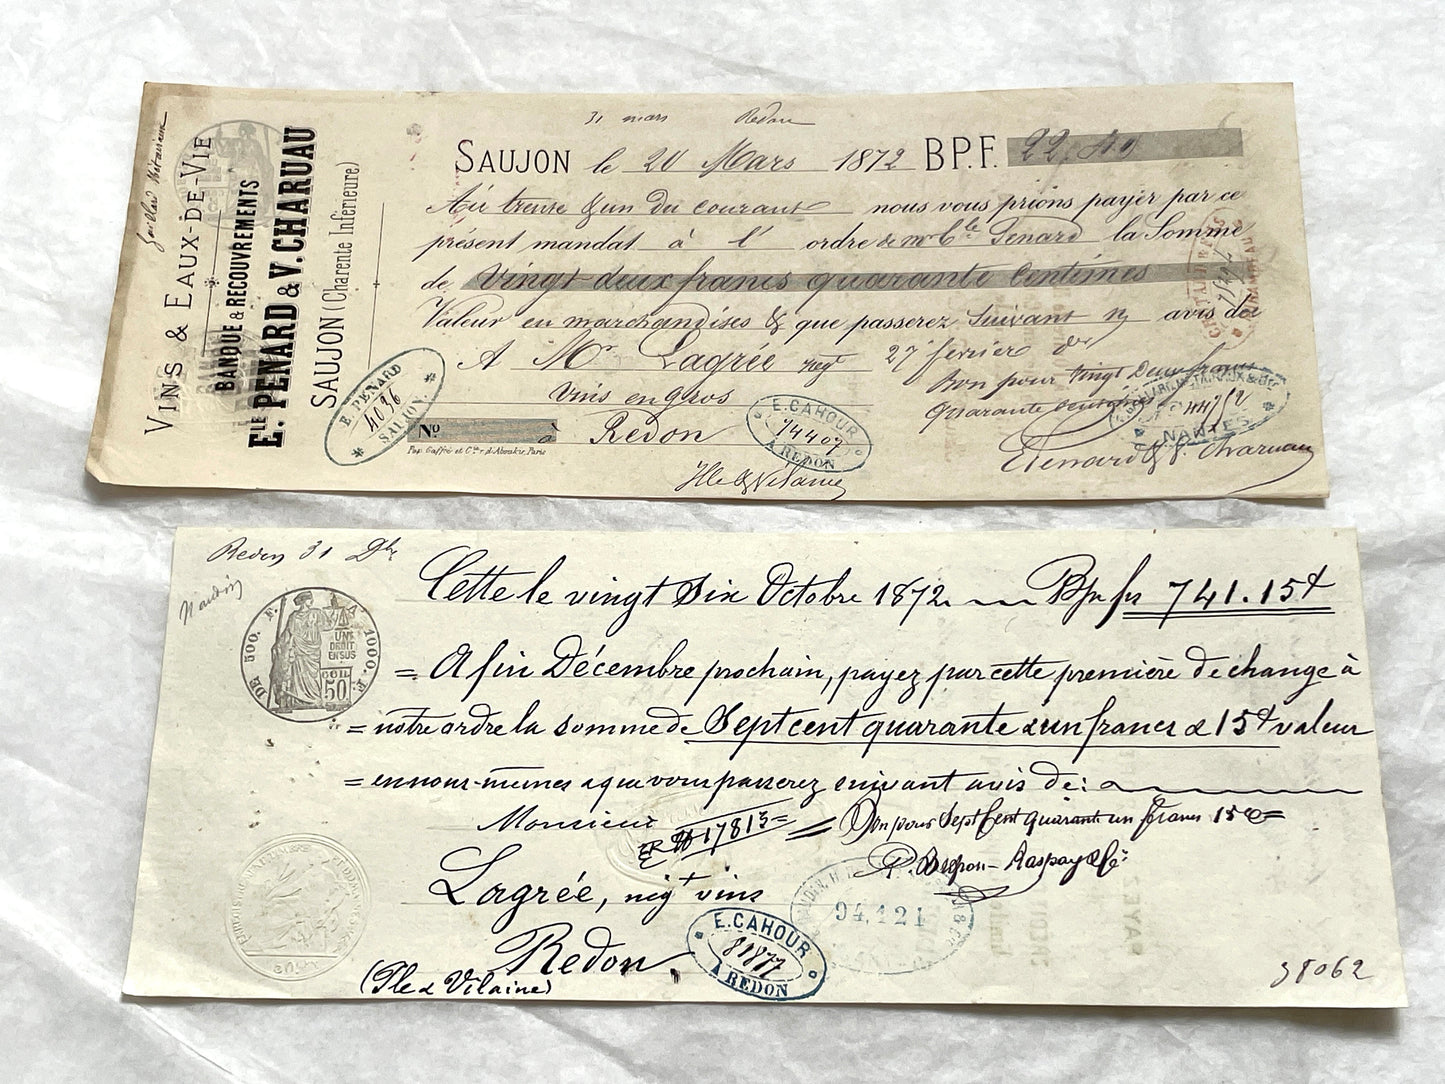 31 mars Redon
SAUJON le 20 Mars 1872 B.P.F. 22.40
Au trente & un du courant nous vous prions payer par ce
présent mandat à l' ordre de Penard la Somme
de Vingt-deux francs quarante Centimes
Valeur en marchandises & que passerez Suivant avis de
A Mr Lagrée negt 27 fevrier der
Vins en gros
Bon pour Vingt Deux francs
quarante centimes
No à Redon
Ille & Vilaine
E Penard & V. Charuau
Pap. Gaffré et Cie r. d'Aboukir, Paris
VINS & EAUX-DE-VIE
BANQUE & RECOUVREMENTS
ELE PENARD & V. CHARUAU
SAUJON (Charente Inférieure)
E. PENARD
4036
SAUJON.
E. CAHOUR
74407
A REDON
NANTES
Redon 31 Dbre
DE 500. F. A 1000. F.
UN
DROIT
EN SUS
50
Cette le vingt six Octobre 1872 Bpr frs 741.15ct
= A fin Décembre prochain, payez par cette première de change à
= notre ordre la somme de Sept cent quarante & un francs & 15ct valeur
= en nous-mêmes & que vous passerez suivant avis de:
Monsieur
17815 =
Bon pour Sept Cent quarante un francs 15c =
Lagrée, négt vins
Redon
(Ile & Vilaine)
94.121
E. CAHOUR
88877
A REDON
98062